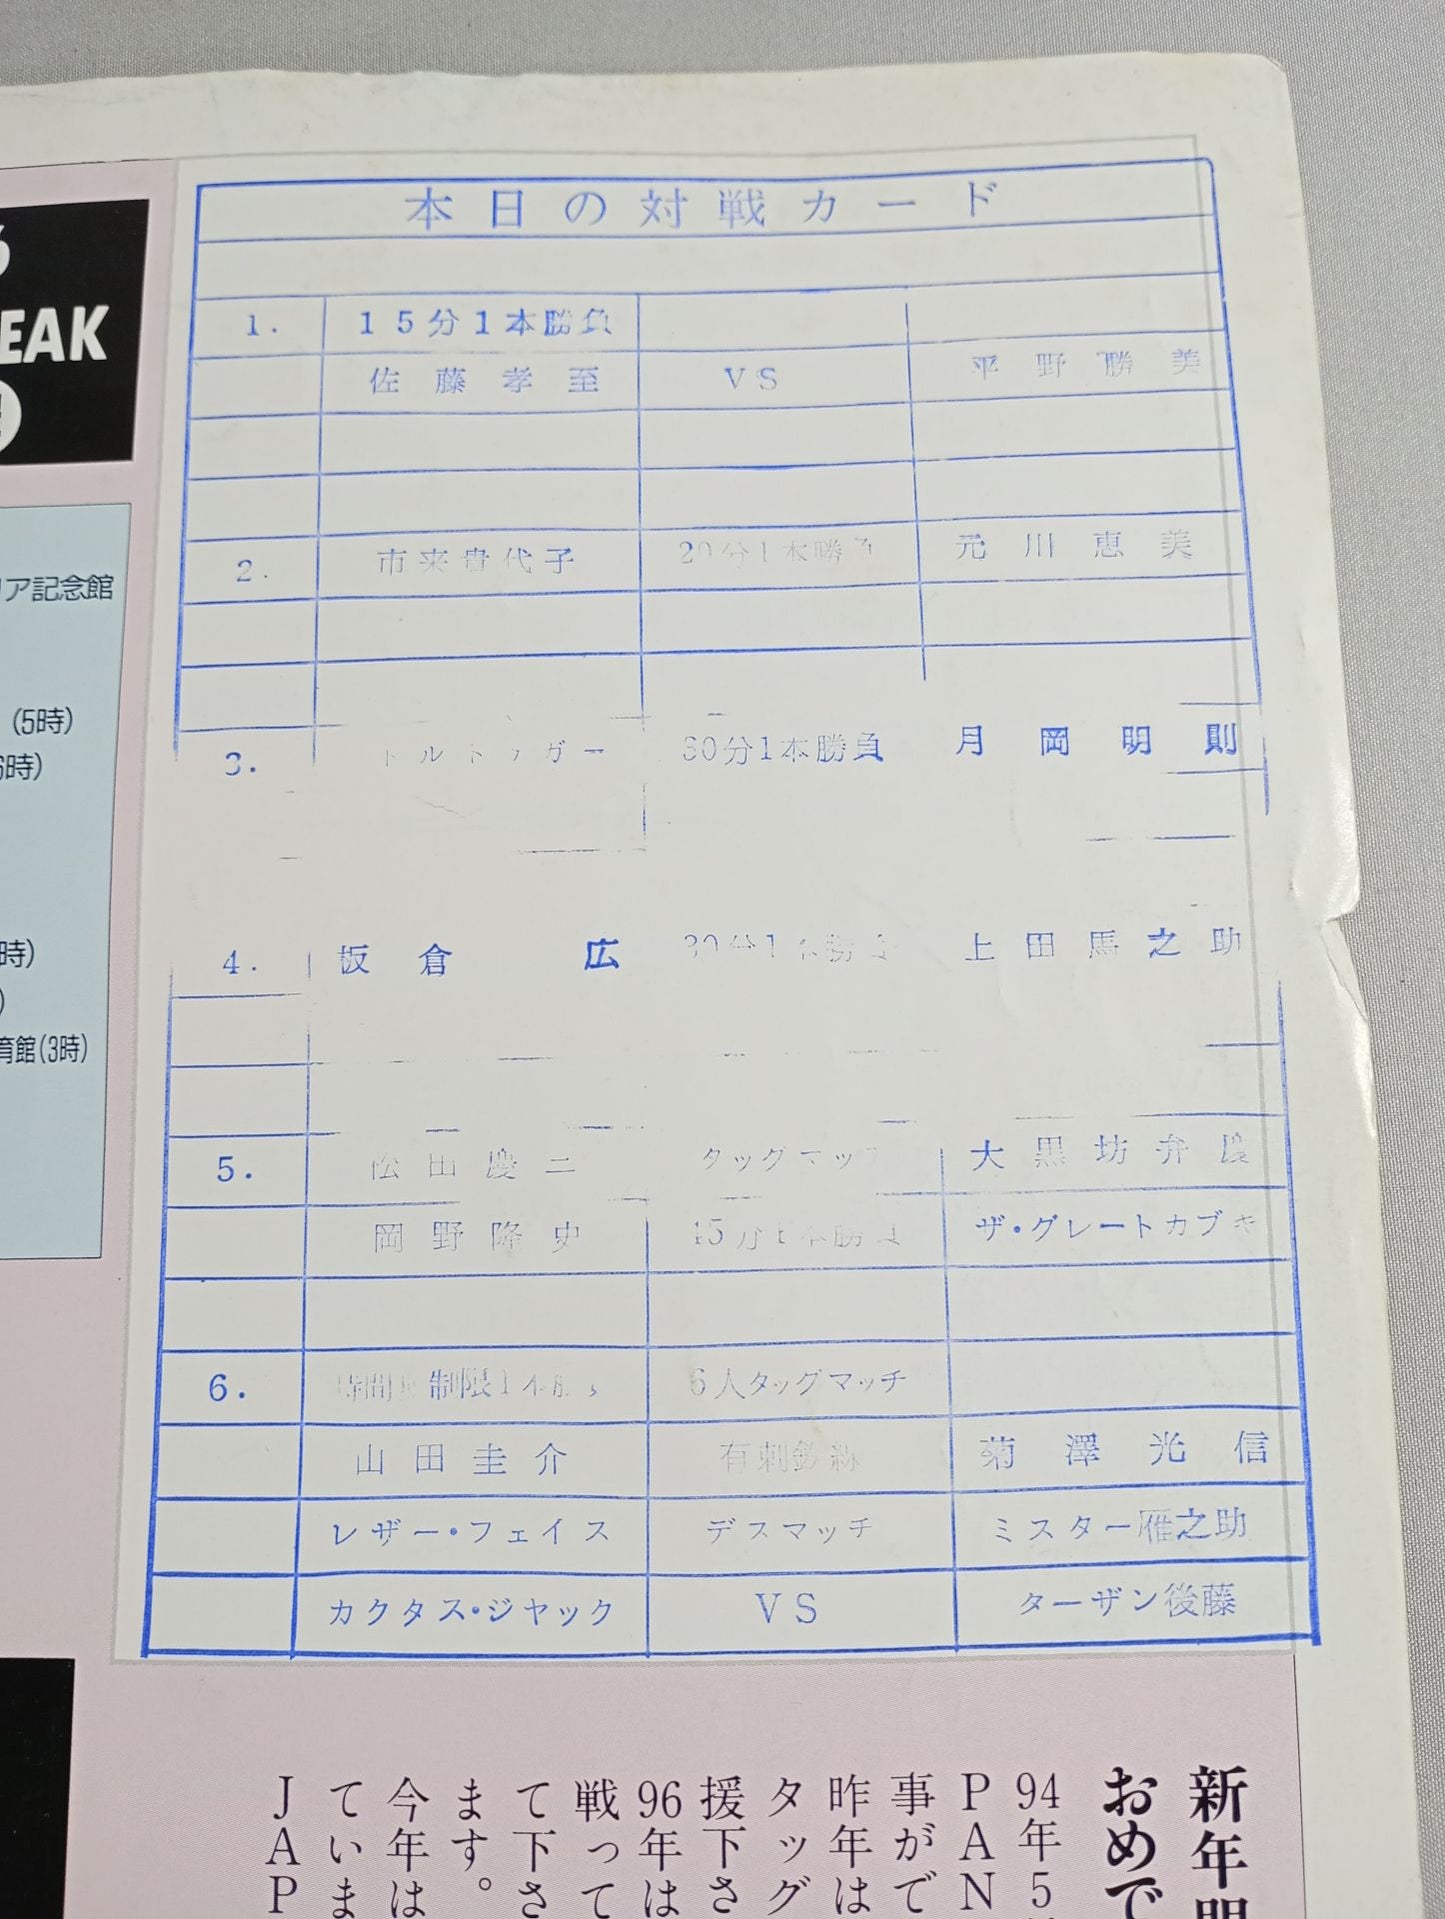 本日の対戦カード
1. 15分1本勝負
佐藤孝至 VS 平野勝美
2. 市来貴代子 20分1本勝負 元川恵美
3. ドルトッガー 30分1本勝負 月岡明則
4. 坂倉 広 30分1本勝負 上田馬之助
5. 松田慶二 タッグマッチ 大黒坊弁慶
岡野隆史 45分1本勝負 ザ・グレートカブキ
6. 時間無制限1本勝負 6人タッグマッチ
山田圭介 有刺鉄線 菊澤光信
レザー・フェイス デスマッチ ミスター雁之助
カクタス・ジャック VS ターザン後藤
EAK
リア記念館
(5時)
6時)
時)
)
育館(3時)
新年明
おめで
94年5
PAN
事がで
昨年は
タッグ
援下さ
96年は
戦って
て下さ
ます。
今年は
ていま
JAP